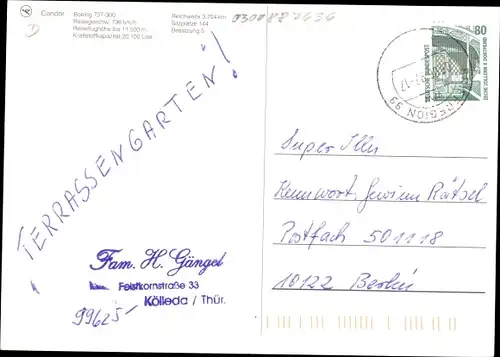 Condor
Boeing 737-300
Reisegeschw. 796 km/h
Reiseflughöhe bis 11 500 m
Kraftstoffkapazität 20 100 Liter
Reichweite 3.704 km
Sitzplätze 144
Besatzung 6
0300887636
D
80
DEUTSCHE BUNDESPOST
ZECHE ZOLLERN II DORTMUND
REGION 99
TERRASSENGARTEN!
Super Illu
Kennwort, Gewinn Rätsel
Postfach 501118
10122 Berlin
Fam. H. Gängel
Feistkornstraße 33
Kölleda / Thür.
99625-